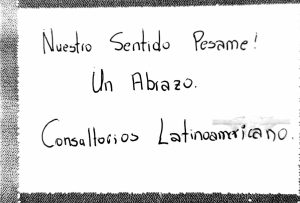 Nuestro Sentido Pesame!
Un Abrazo.
Consultorios Latinoamericano.